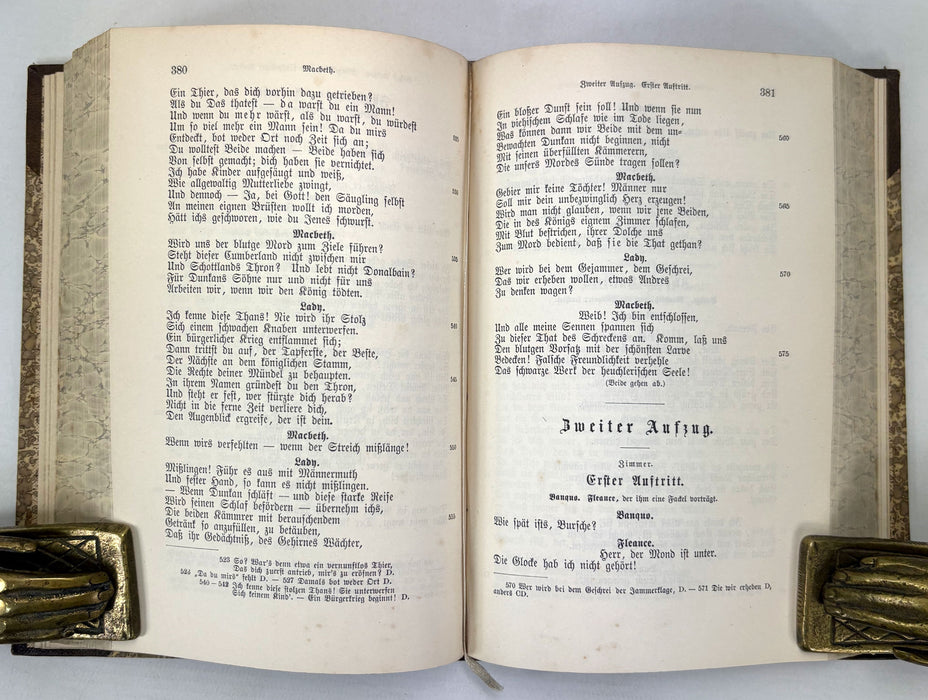 380
Macbeth.
Ein Thier, das dich vorhin dazu getrieben?
Als du Das thatest — da warst du ein Mann!
Und wenn du mehr wärst, als du warst, du würdest
Um so viel mehr ein Mann sein! Da du mirs
525
Entdeckt, bot weder Ort noch Zeit sich an;
Du wolltest Beide machen — Beide haben sich
Von selbst gemacht; dich haben sie vernichtet.
Ich habe Kinder aufgesäugt und weiß,
Wie allgewaltig Mutterliebe zwingt,
530
Und dennoch — Ja, bei Gott! den Säugling selbst
An meinen eignen Brüsten wollt ich morden,
Hätt ichs geschworen, wie du Jenes schwurst.
Macbeth.
Wird uns der blutge Mord zum Ziele führen?
Steht dieser Cumberland nicht zwischen mir
535
Und Schottlands Thron? Und lebt nicht Donalbain?
Für Dunkans Söhne nur und nicht für uns
Arbeiten wir, wenn wir den König tödten.
Lady.
Ich kenne diese Thans! Nie wird ihr Stolz
Sich einem schwachen Knaben unterwerfen.
540
Ein bürgerlicher Krieg entflammet sich;
Dann trittst du auf, der Tapferste, der Beste,
Der Nächste an dem königlichen Stamm,
Die Rechte deiner Mündel zu behaupten.
In ihrem Namen gründest du den Thron,
545
Und steht er fest, wer stürzte dich herab?
Nicht in die ferne Zeit verliere dich,
Den Augenblick ergreife, der ist dein.
Macbeth.
Wenn wirs verfehlten — wenn der Streich mißlänge!
550
Lady.
Mißlingen! Führ es aus mit Männermuth
Und fester Hand, so kann es nicht mißlingen.
— Wenn Dunkan schläft — und diese starke Reise
Wird seinen Schlaf befördern — übernehm ichs,
Die beiden Kämmrer mit berauschendem
555
Getränk so anzufüllen, zu betäuben,
Daß ihr Gedächtniß, des Gehirnes Wächter,
523 So? War's denn etwa ein vernunftlos Thier,
Das dich zuerst antrieb, mir's zu eröfnen? D.
524 „Da du mirs“ fehlt D. — 527 Damals bot weder Ort D.
540—542 Ich kenne diese stolzen Thans! Sie unterwerfen
Sich keinem Kind'. — Ein Bürgerkrieg beginnt! D.
Zweiter Aufzug. Erster Auftritt.
381
Ein bloßer Dunst sein soll! Und wenn sie nun
In viehischem Schlafe wie im Tode liegen,
Was können dann wir Beide mit dem un-
560
Bewachten Dunkan nicht beginnen, nicht
Mit seinen überfüllten Kämmerern,
Die unsers Mordes Sünde tragen sollen?
Macbeth.
Gebier mir keine Töchter! Männer nur
Soll mir dein unbezwinglich Herz erzeugen!
565
Wird man nicht glauben, wenn wir jene Beiden,
Die in des Königs eignem Zimmer schlafen,
Mit Blut bestrichen, ihrer Dolche uns
Zum Mord bedient, daß sie die That gethan?
Lady.
Wer wird bei dem Gejammer, dem Geschrei,
570
Das wir erheben wollen, etwas Andres
Zu denken wagen?
Macbeth.
Weib! Ich bin entschlossen,
Und alle meine Sennen spannen sich
Zu dieser That des Schreckens an. Komm, laß uns
Den blutgen Vorsatz mit der schönsten Larve
575
Bedecken! Falsche Freundlichkeit verhehle
Das schwarze Werk der heuchlerischen Seele!
(Beide gehen ab.)
Zweiter Aufzug.
Zimmer.
Erster Auftritt.
Banquo. Fleance, der ihm eine Fackel vorträgt.
Banquo.
Wie spät ists, Bursche?
Fleance.
Herr, der Mond ist unter.
Die Glocke hab ich nicht gehört!
570 Wer wird bei dem Geschrei der Jammerklage, D. — 571 Die wir erheben D,
anders CD.